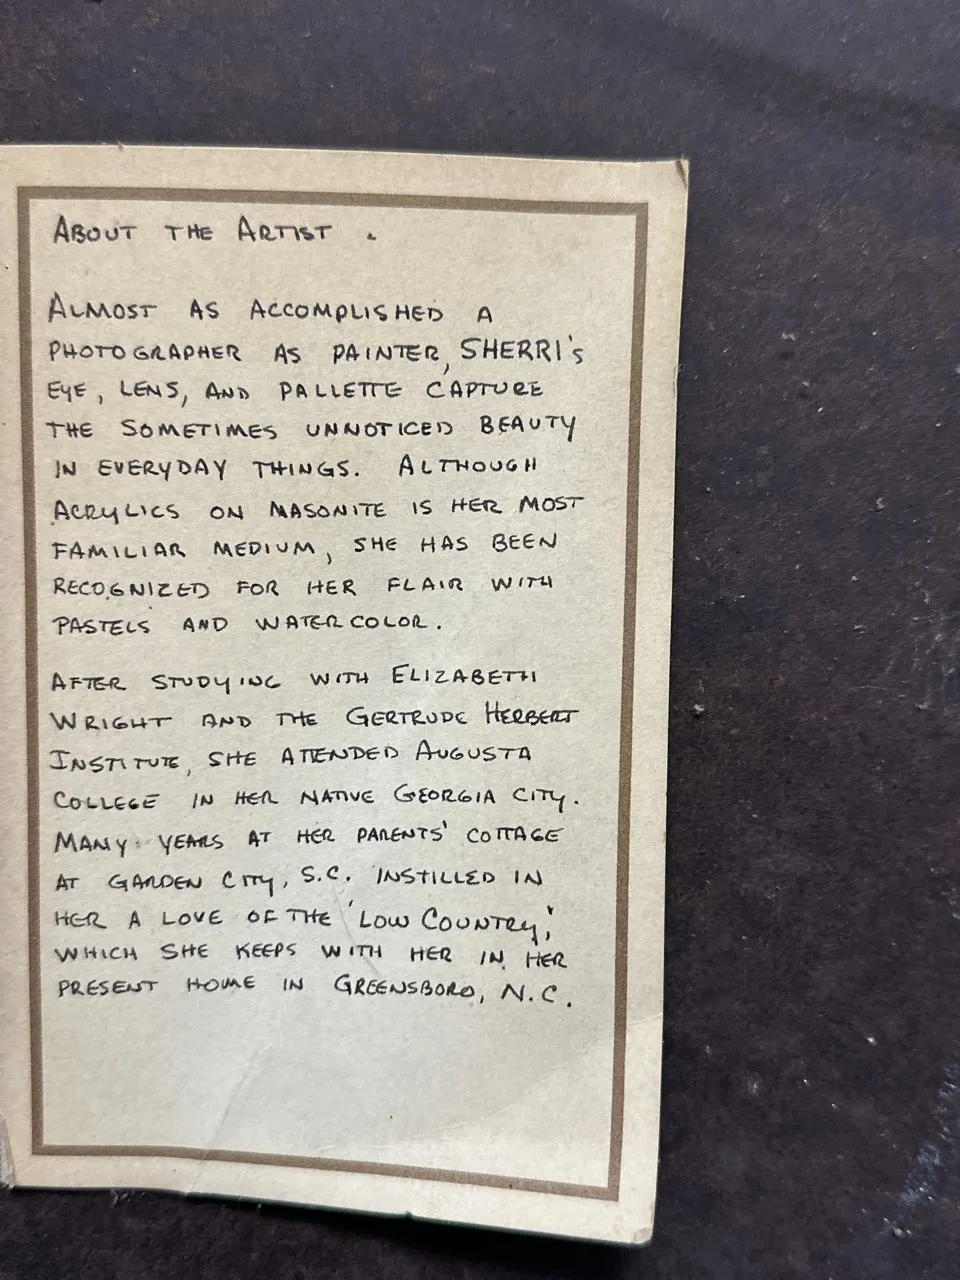 ABOUT THE ARTIST .
ALMOST AS ACCOMPLISHED A
PHOTOGRAPHER AS PAINTER, SHERRI'S
EYE, LENS, AND PALLETTE CAPTURE
THE SOMETIMES UNNOTICED BEAUTY
IN EVERYDAY THINGS. ALTHOUGH
ACRYLICS ON MASONITE IS HER MOST
FAMILIAR MEDIUM, SHE HAS BEEN
RECOGNIZED FOR HER FLAIR WITH
PASTELS AND WATERCOLOR.
AFTER STUDYING WITH ELIZABETH
WRIGHT AND THE GERTRUDE HERBERT
INSTITUTE, SHE ATTENDED AUGUSTA
COLLEGE IN HER NATIVE GEORGIA CITY.
MANY YEARS AT HER PARENTS' COTTAGE
AT GARDEN CITY, S.C. INSTILLED IN
HER A LOVE OF THE 'LOW COUNTRY,'
WHICH SHE KEEPS WITH HER IN HER
PRESENT HOME IN GREENSBORO, N.C.